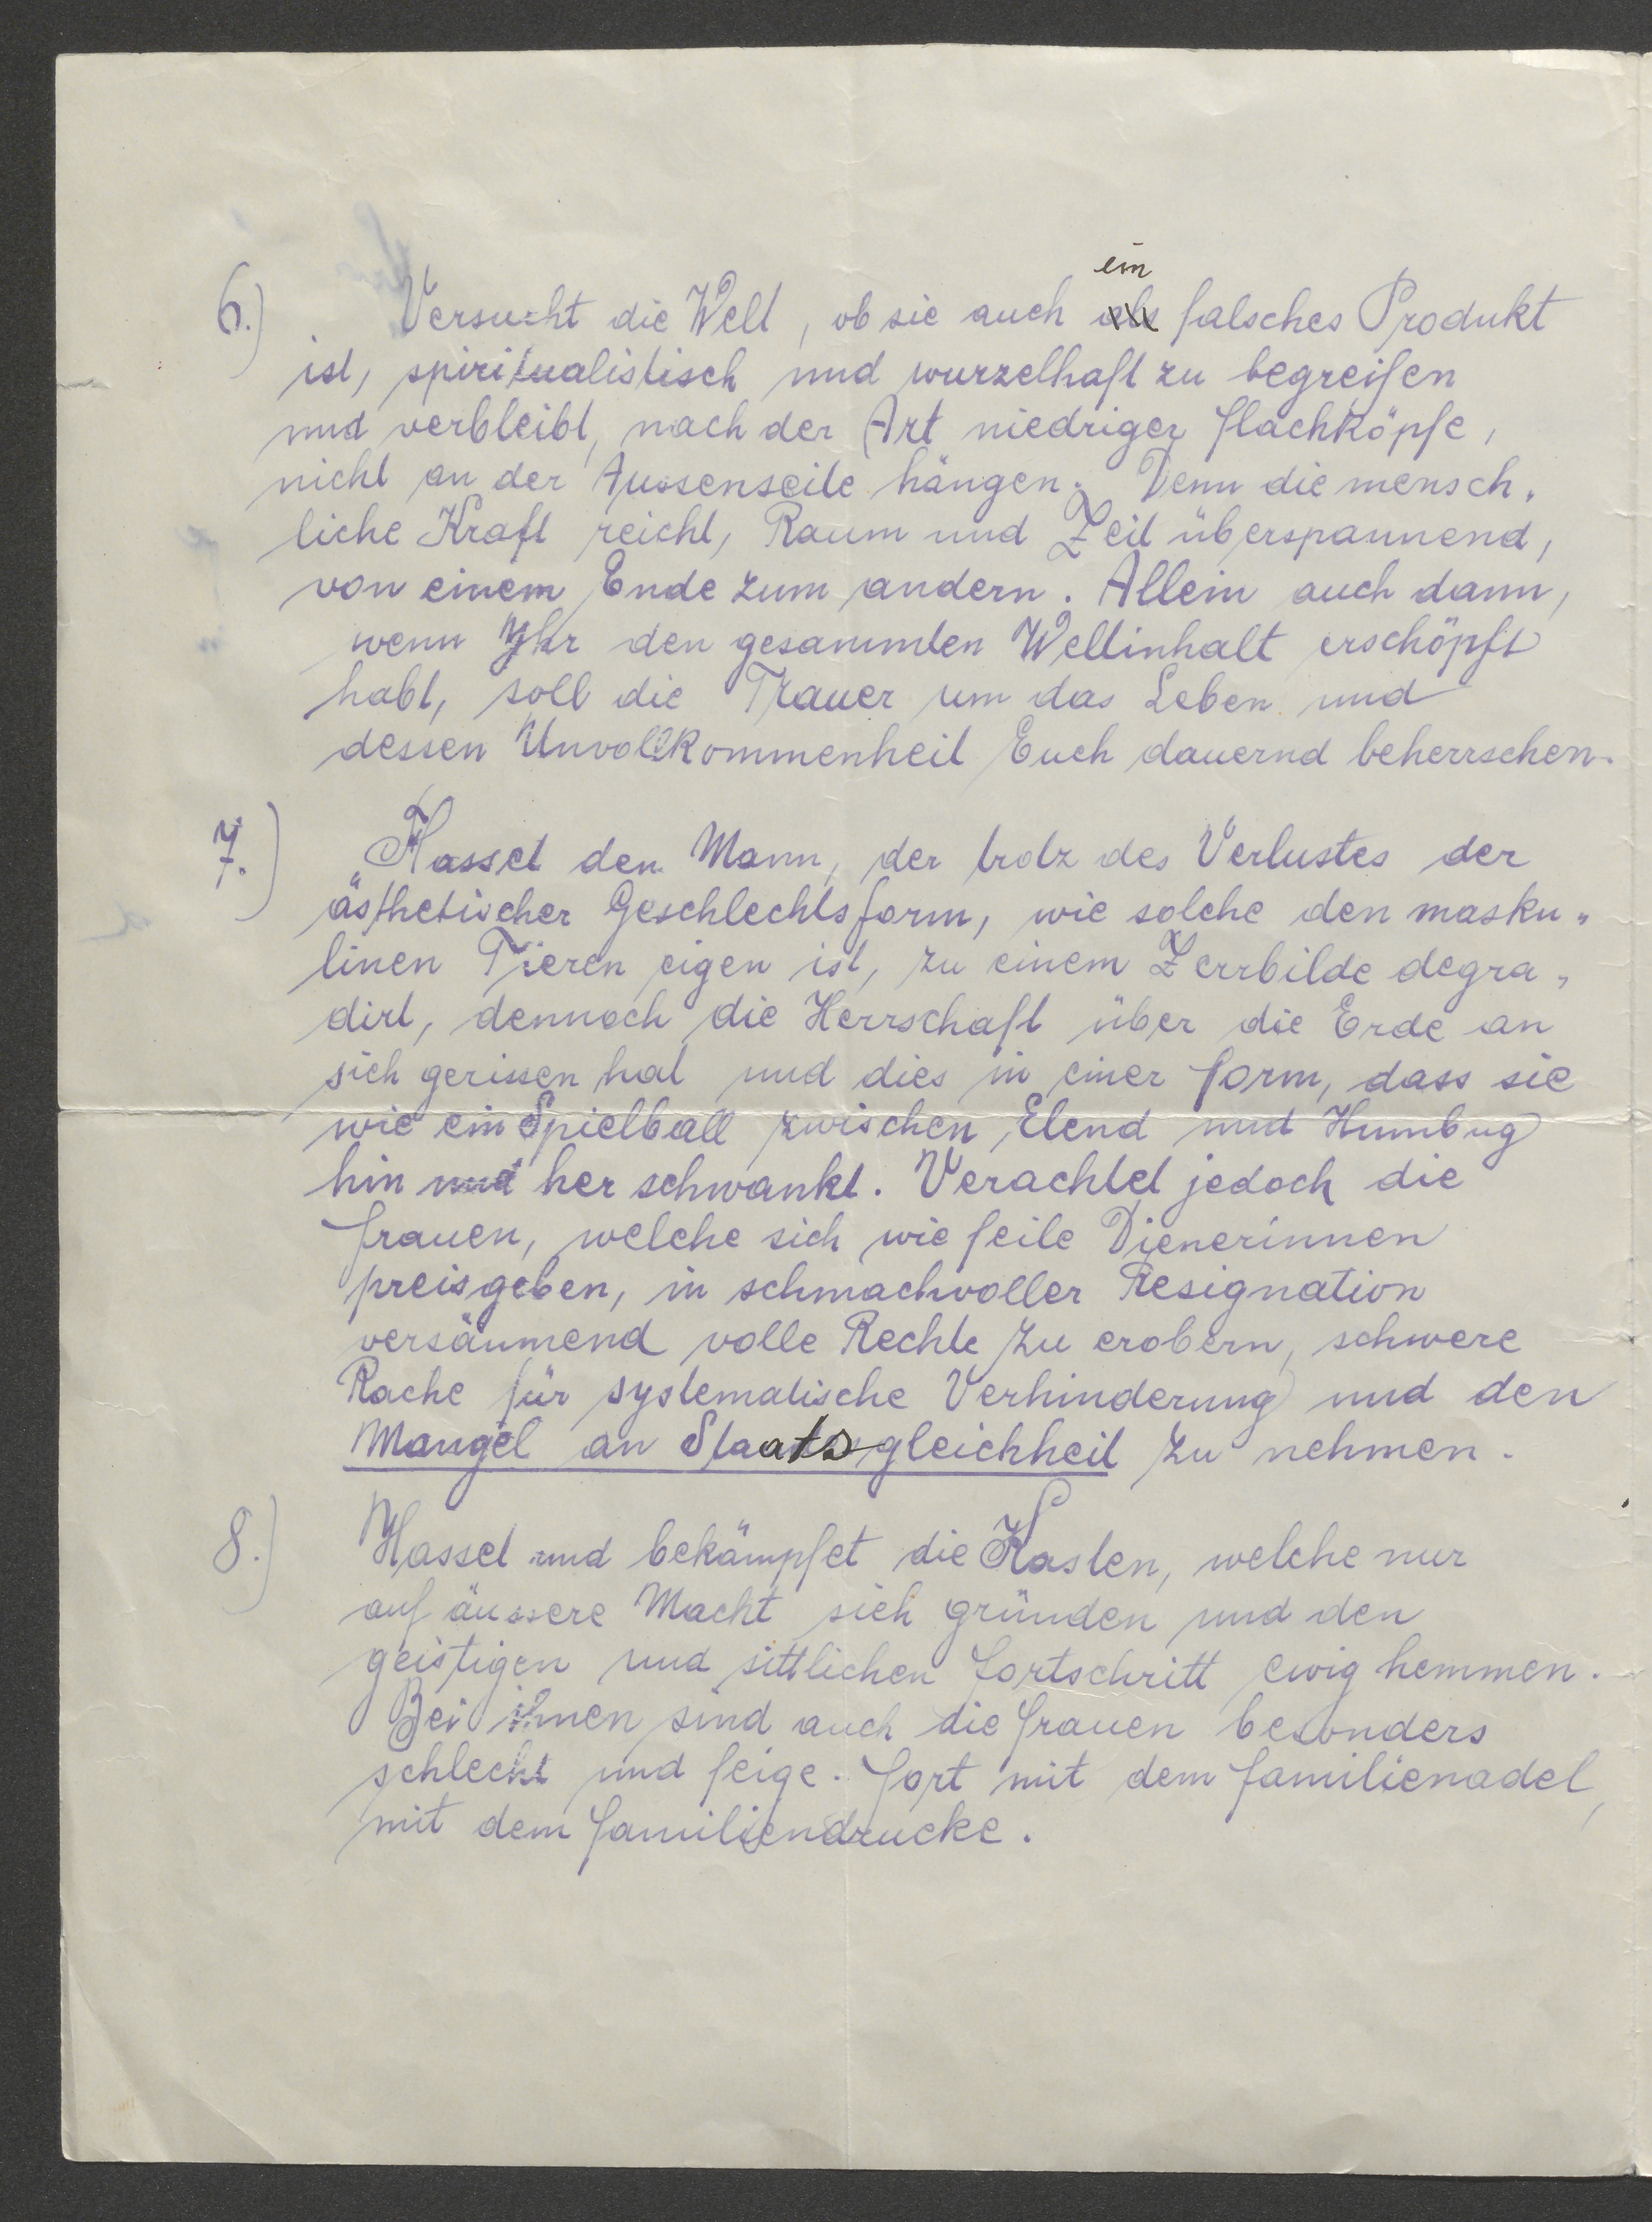 6.) Versucht die Welt, ob sie auch ein falsches Produkt
ist, spiritualistisch und wurzelhaft zu begreifen
und verbleibt, nach der Art niedriger Flachköpfe,
nicht an der Aussenseite hängen. Denn die mensch„
liche Kraft reicht, Raum und Zeit überspannend,
von einem Ende zum andern. Allein auch dann,
wenn Ihr den gesammten Weltinhalt erschöpft
habt, soll die Trauer um das Leben und
dessen Unvollkommenheit Euch dauernd beherrschen.
7.) „Hasset den Mann, der trotz des Verlustes der
ästhetischer Geschlechtsform, wie solche den masku„
linen Tieren eigen ist, zu einem Zerrbilde degra„
dirt, dennoch die Herrschaft über die Erde an
sich gerissen hat und dies in einer Form, dass sie
wie ein Spielball zwischen Elend und Humbug
hin und her schwankt. Verachtet jedoch die
Frauen, welche sich wie feile Dienerinnen
preisgeben, in schmachvoller Resignation
versäumend volle Rechte zu erobern, schwere
Rache für systematische Verhinderung und den
Mangel an Staatsgleichheit zu nehmen.
8.) Hasset und bekämpfet die Kasten, welche nur
auf äussere Macht sich gründen und den
geistigen und sittlichen Fortschritt ewig hemmen.
Bei ihnen sind auch die Frauen besonders
schlecht und feige. Fort mit dem Familienadel,
mit dem Familiendrucke.